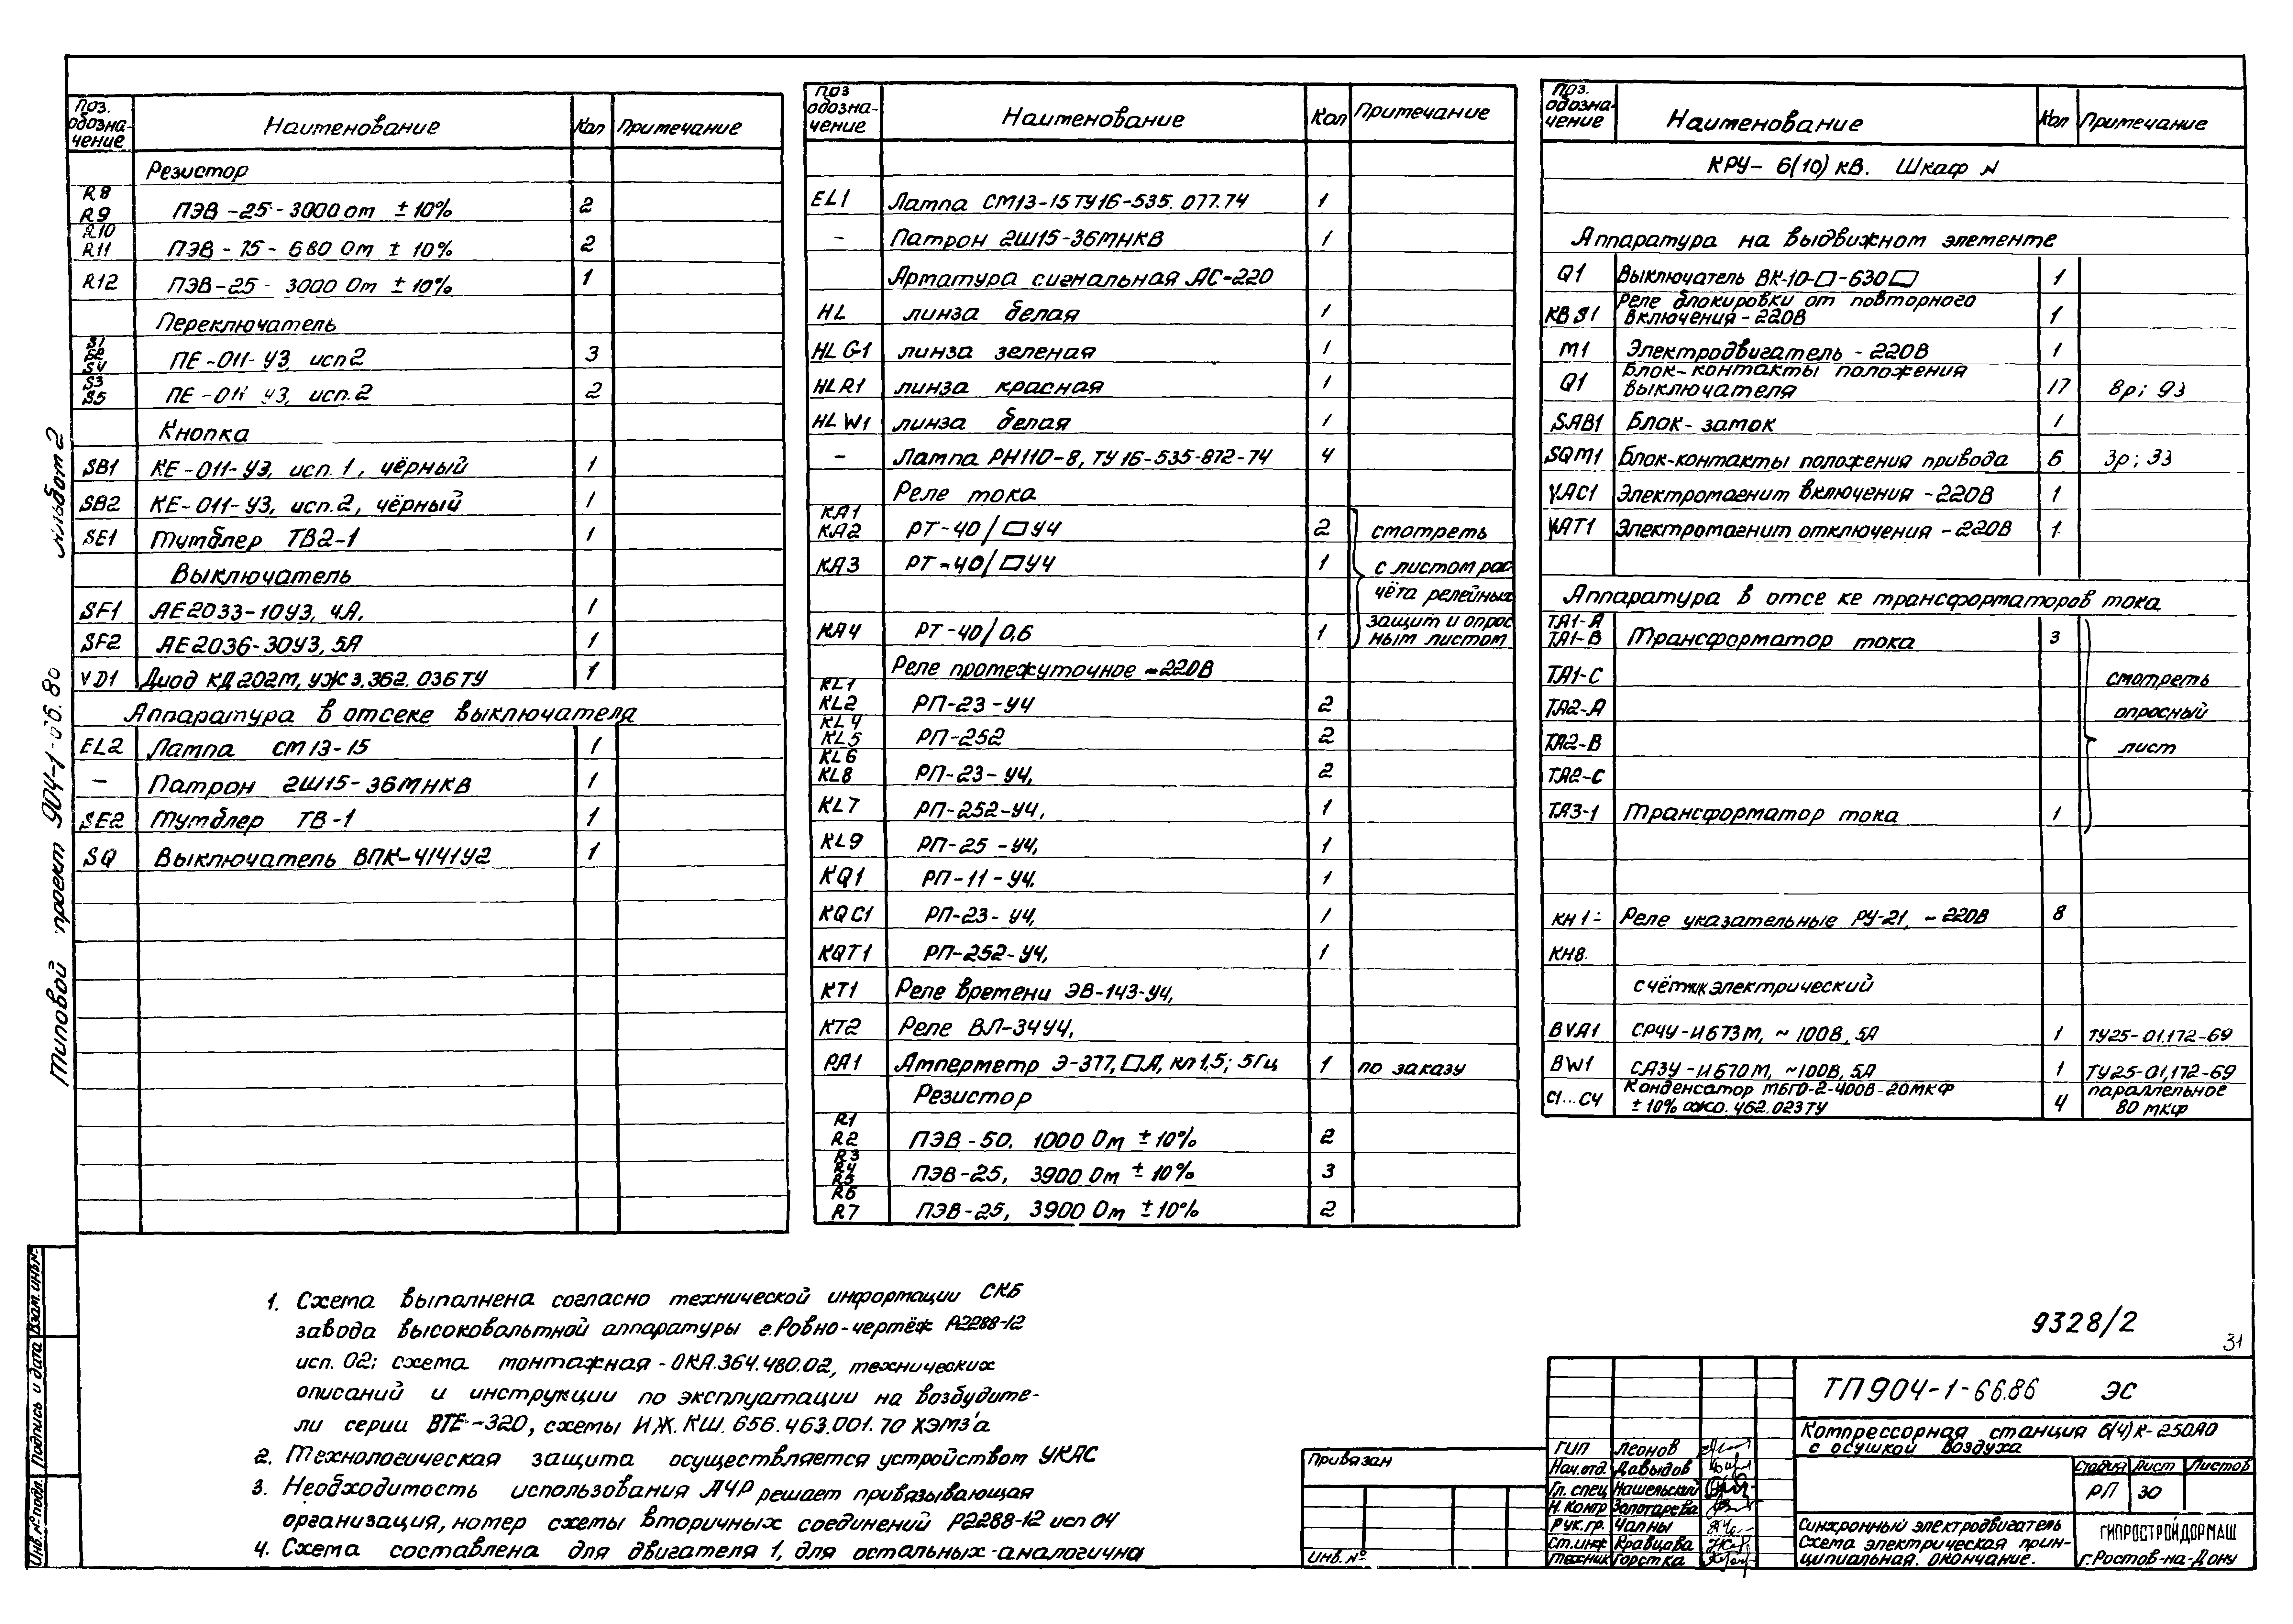 Альбом 2
Типовой проект 904-1-66.86
Поз. обозна-чение Наименование Кол Примечание
Резистор
R8
R9 ПЭВ-25-3000 Ом ±10% 2
R10
R11 ПЭВ-75-680 Ом ±10% 2
R12 ПЭВ-25-3000 Ом ±10% 1
Переключатель
S1
S2
S4 ПЕ-011-У3 исп 2 3
S3
S5 ПЕ-011 У3, исп. 2 2
Кнопка
SB1 КЕ-011-У3, исп. 1, чёрный 1
SB2 КЕ-011-У3, исп. 2, чёрный 1
SE1 Тумблер ТВ2-1 1
Выключатель
SF1 АЕ2033-10У3, 4А, 1
SF2 АЕ2036-30У3, 5А 1
VD1 Диод КД202М, УЖ3.362.036ТУ 1
Аппаратура в отсеке выключателя
EL2 Лампа СМ13-15 1
— Патрон 2Ш15-36МНКВ 1
SE2 Тумблер ТВ-1 1
SQ Выключатель ВПК-4141У2 1
Поз обозна-чение Наименование Кол Примечание
EL1 Лампа СМ13-15 ТУ16-535.077.74 1
— Патрон 2Ш15-36МНКВ 1
Арматура сигнальная АС-220
HL линза белая 1
HLG1 линза зеленая 1
HLR1 линза красная 1
HLW1 линза белая 1
— Лампа РН110-8, ТУ16-535-872-74 4
Реле тока
KA1
KA2 РТ-40/□У4 2 смотреть
KA3 РТ-40/□У4 1 с листом рас
чёта релейных
защит и опрос
KA4 РТ-40/0,6 1 ным листом
Реле промежуточное -220В
KL1
KL2 РП-23-У4 2
KL4
KL5 РП-252 2
KL6
KL8 РП-23-У4, 2
KL7 РП-252-У4, 1
KL9 РП-25-У4, 1
KQ1 РП-11-У4, 1
KQC1 РП-23-У4, 1
KQT1 РП-252-У4, 1
KT1 Реле времени ЭВ-143-У4,
KT2 Реле ВЛ-34У4,
PA1 Амперметр Э-377, □А, кл 1,5; 5Гц 1 по заказу
Резистор
R1
R2 ПЭВ-50, 1000 Ом ±10% 2
R3
R4
R5 ПЭВ-25, 3900 Ом ±10% 3
R6
R7 ПЭВ-25, 3900 Ом ±10% 2
Поз. обозна-чение Наименование Кол Примечание
КРУ-6(10) кВ. Шкаф N
Аппаратура на выдвижном элементе
Q1 Выключатель ВК-10-□-630□ 1
KBS1 Реле блокировки от повторного
включения-220В 1
M1 Электродвигатель-220В 1
Q1 Блок-контакты положения
выключателя 17 8р; 9з
SAB1 Блок-замок 1
SQM1 Блок-контакты положения привода 6 3р; 3з
YAC1 Электромагнит включения-220В 1
YAT1 Электромагнит отключения-220В 1
Аппаратура в отсе ке трансформаторов тока
TA1-A
TA1-B Трансформатор тока 3
TA1-C смотреть
TA2-A опросный
TA2-B лист
TA2-C
TA3-1 Трансформатор тока 1
KH1- Реле указательные РУ-21, -220В 8
KH8.
счётчик электрический
BVA1 СРЧУ-И673М, ~100В, 5А 1 ТУ25-01.172-69
BW1 САЗУ-И670М, ~100В, 5А 1 ТУ25-01.172-69
C1...C4 Конденсатор МБГО-2-400В-20МКФ
±10% ОЖО.462.023ТУ 4 параллельное
80 мкф
1. Схема выполнена согласно технической информации СКБ
завода высоковольтной аппаратуры г.Ровно-чертёж Р2288-12
исп. 02; схема монтажная-ОКА.364.480.02, технических
описаний и инструкции по эксплуатации на возбудите-
ли серии ВТЕ-320, схемы ИЖ.КШ.656.463.001.70 ХЭМЗ'а
2. Технологическая защита осуществляется устройством УКАС
3. Необходимость использования АЧР решает привязывающая
организация, номер схемы вторичных соединений Р2288-12 исп 04
4. Схема составлена для двигателя 1, для остальных-аналогична
9328/2
31
Взам. инв.№
Подпись и дата
Инв.№ подл.
Привязан
Инв. №
ТП904-1-66.86 ЭС
Компрессорная станция 6(4)К-250АО
с осушкой воздуха
ГИП Леонов
Нач.отд. Давыдов
Гл. спец Нашельский
Н. Контр Золотарева
Рук.гр. Чапны
Ст.инж Кравцова
Техник Горстка
Стадия Лист Листов
РП 30
Синхронный электродвигатель
Схема электрическая прин-
ципиальная. Окончание.
ГИПРОСТРОЙДОРМАШ
г.Ростов-на-Дону